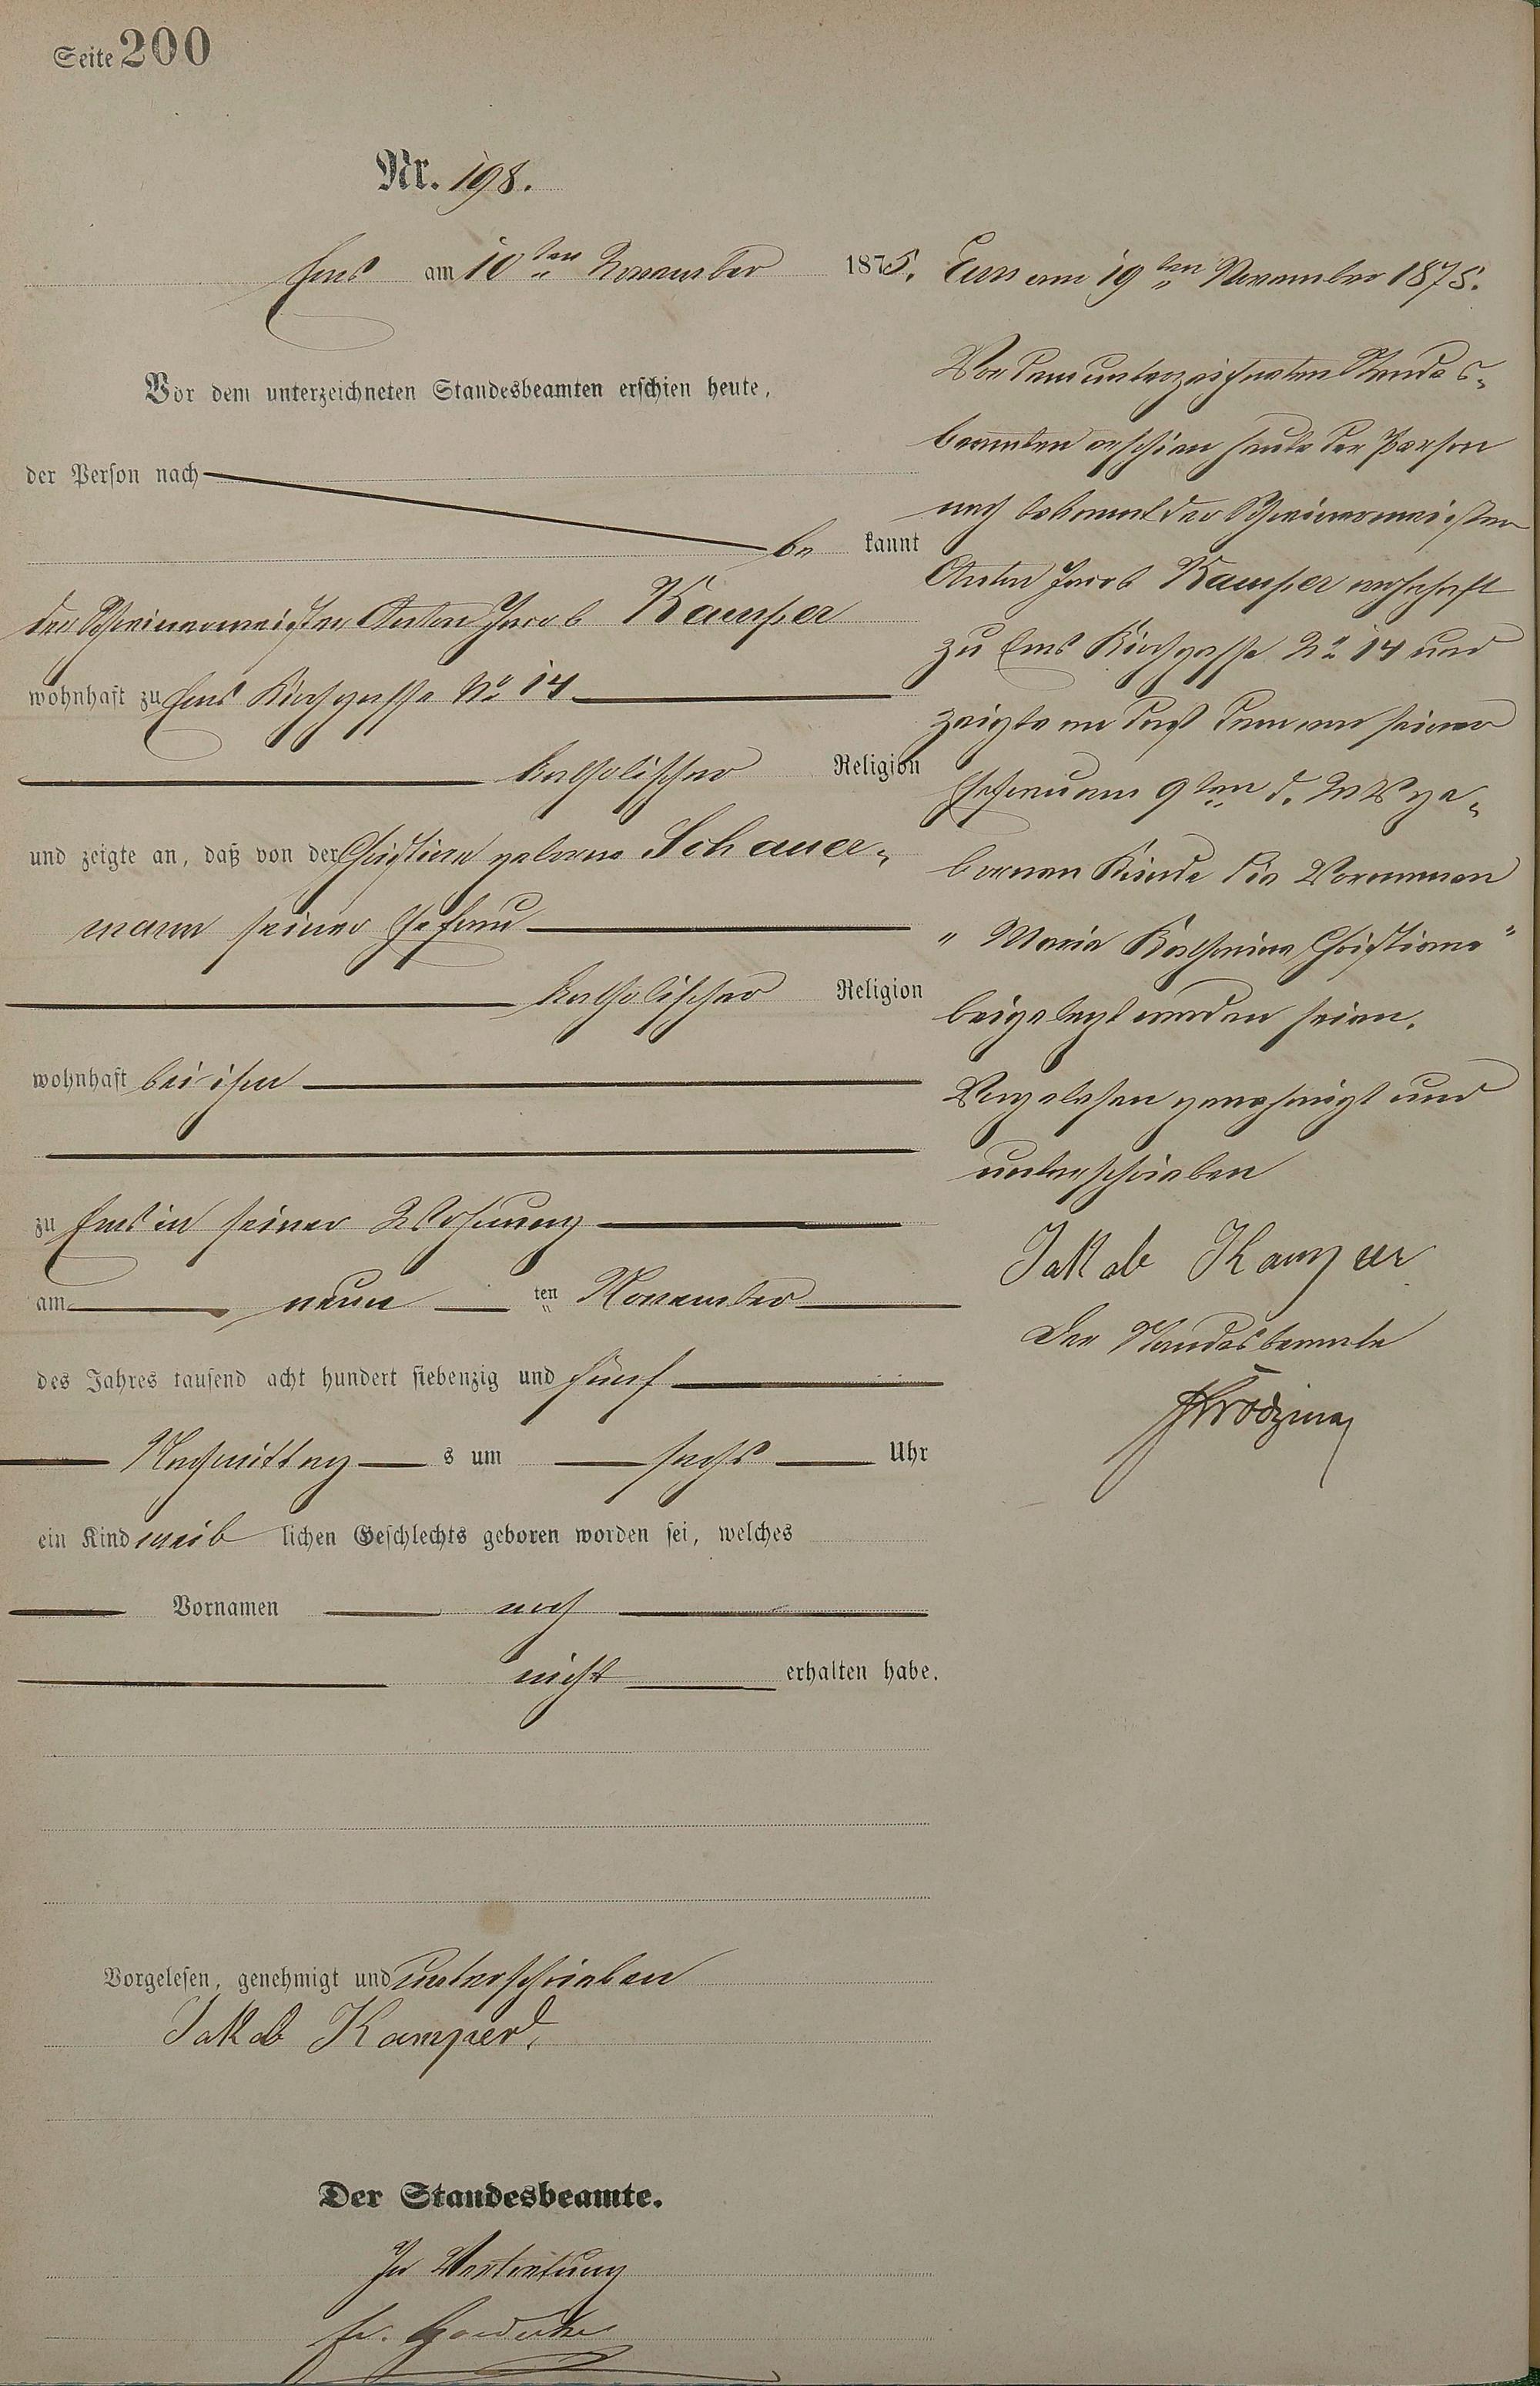 Seite 200
Nr. 198.
Ems am 10ten November 1875.
Vor dem unterzeichneten Standesbeamten erschien heute,
der Person nach
be kannt
der Schreinermeister Anton Jacob Kamper
wohnhaft zu Ems Kirchgasse No 14
katholischer Religion
und zeigte an, daß von der Christiane geborne Schauer-
mann seiner Ehefrau
katholischer Religion
wohnhaft bei ihm
zu Ems in seiner Wohnung
am neun ten November
des Jahres tausend acht hundert siebenzig und fünf
Nachmittag s um sechs Uhr
ein Kind weib lichen Geschlechts geboren worden sei, welches
Vornamen noch
nicht erhalten habe.
Vorgelesen, genehmigt und unterschrieben
Jakob Kamper.
Der Standesbeamte.
In Vertretung
Ems am 19ten November 1875.
Vor dem unterzeichneten Standes-
beamten erschien heute der Person
nach bekannt der Schreinermeister
Anton Jacob Kamper wohnhaft
zu Ems Kirchgasse No 14 und
zeigte an daß dem von seiner
Ehefrau am 9ten d. Mts ge-
bornen Kinde die Vornamen
"Maria Katharina Christiane"
beigelegt worden seien.
Vorgelesen genehmigt und
unterschrieben
Jakob Kamper
Der Standesbeamte